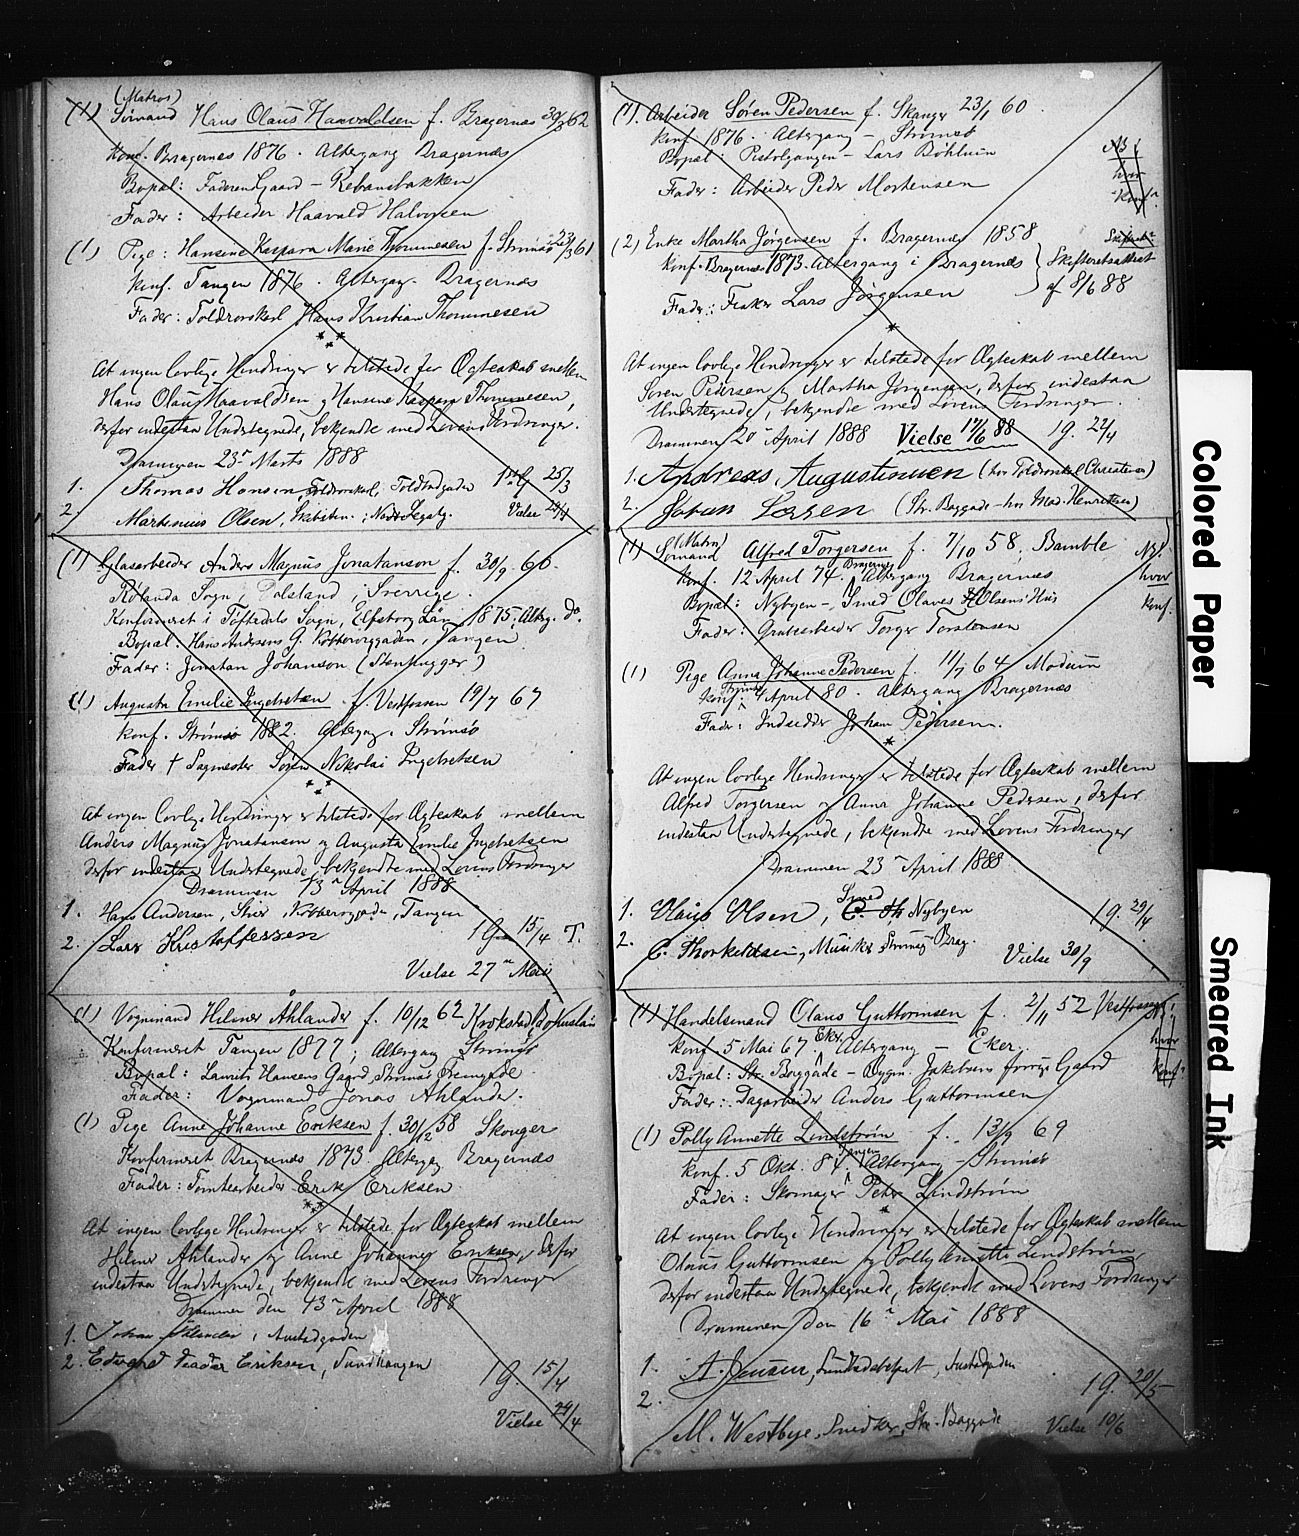 (Matros)
(1) Sømand Hans Olaus Haavaldsen f. Bragernes 62
Konf. Bragernes 1876. Altergang Bragernes
Bopæl: Faderens Gaard - Rebanebakken
Fader: Arbeider Haavald Halvorsen
(1) Pige: Hansine Kaspara Marie Thommesen f. Strømsø 23/3 61
Konf. Tangen 1876. Altergang. Bragernes
Fader: Toldrorskarl Hans Kristian Thommesen
At ingen lovlige Hindringer er tilstede for Ægteskab mellem
Hans Olaus Haavaldsen og Hansine Kaspara Thommesen,
derfor indestaa Undertegnede, bekjendte med Lovens Fordringer.
Drammen 23de Marts 1888
1. Thomas Hansen Toldrorskarl, Toldbodgaden 1ste G 25/3
2. Martinius Olsen, Vielse
(1) Glasarbeider Anders Magnus Jonatanson f. 30/9 60.
Rølanda Sogn, Dalsland i Sverrige.
Konfirmeret i Töftedals Sogn, Elfsborg Län 1875. Alterg. do.
Bopæl: Hans Andersens G. Kobbervigsgaden, Tangen
Fader: Jonatan Johanson (Stenhugger)
(1) Augusta Emilie Ingebretsen f. Vestfossen 19/7 67
Konf. Strømsø 1882. Altergang. Strømsø
Fader † Sagmester Søren Nikolai Ingebretsen
At ingen lovlige Hindringer er tilstede for Ægteskab mellem
Anders Magnus Jonatanson og Augusta Emilie Ingebretsen
derfor indestaa Undertegnede, bekjendte med Lovens Fordringer
Drammen 13de April 1888
1. Hans Andersen, Kobbervigsgaden, Tangen
2. Lars Kristoffersen 1 G. 15/4 T.
Vielse 27de Mai
(1) Vognmand Hilmer Ahlander f. 10/12 62 Krokstad, Bohuslän
Konfirmeret Tangen 1877; Altergang Strømsø
Bopæl: Laurits Hansens Gaard, Strømsø Tverrgade.
Fader: Vognmand Jonas Ahlander.
(1) Pige Anne Johanne Eriksen f. 30/12 58 Skouger
Konfirmeret Bragernes 1873. Altergang Bragernes
Fader: Tomtearbeider Erik Eriksen
At ingen lovlige Hindringer er tilstede for Ægteskab mellem
Hilmer Ahlander og Anne Johanne Eriksen, derfor
indestaa Undertegnede, bekjendte med Lovens Fordringer
Drammen den 13de April 1888
1. Johan
2. Edvard Eriksen, Sundhaugen
1 G. 15/4
Vielse 29/4
(1). Arbeider Søren Pedersen f. Skouger 23/1 60.
Konf. 1876. Altergang - Strømsø
Bopæl: Pistolgangen - Lars Bøhlum
Fader: Arbeider Peder Mortensen
NB!
hvor
konf.
(2) Enke Martha Jørgensen f. Bragernes 1858
Konf. Bragernes 1873. Altergang i Bragernes
Fader: Fisker Lars Jørgensen
Skifteretsattest
af 8/6 88
At ingen lovlige Hindringer er tilstede for Ægteskab mellem
Søren Pedersen og Martha Jørgensen, derfor indestaa
Undertegnede, bekjendte med Lovens Fordringer.
Drammen 20de April 1888 Vielse 17/6 88 1 G. 22/4
1. Andreas Augustinusen (hos Toldrorskarl Christensen)
2. Johan Larsen (Str. Baggade - hos Mad. Henriksen)
(Matros)
(1) Sømand Alfred Torgersen f. 7/10 58. Bamble
Konf. 12 April 74. Bragernes Altergang Bragernes
Bopæl: Nybyen - Smed Olaves Olsens Hus
Fader: Grubearbeider Torger Torstensen
NB!
hvor
konf.
(1) Pige Anna Johanne Pedersen f. 11/7 64 Modum
Konf. 4 April 80. Altergang Bragernes
Fader: Indsidder Johan Pedersen.
At ingen lovlige Hindringer er tilstede for Ægteskab mellem
Alfred Torgersen og Anna Johanne Pedersen, derfor
indestaa Undertegnede, bekjendte med Lovens Fordringer
Drammen 23de April 1888.
1. Olaus Olsen, Smed Nybyen 1 G. 29/4
2. C. Thorkildsen, Musiker Brag.
Vielse 30/9
(1) Handelsmand Olaus Guttormsen f. 2/11 52 Vestfossen
Konf. 5 Mai 67 Eker Altergang - Eker.
Bopæl: Str. Baggade - Bygm. Jakobsens forrige Gaard
Fader: Dagarbeider Anders Guttormsen
NB!
hvor
konf.
(1) Polly Annette Lindstrøm f. 13/9 69
Konf. 5 Okt. 84. Tangen Altergang - Strømsø
Fader: Skomager Peter Lindstrøm
At ingen lovlige Hindringer er tilstede for Ægteskab mellem
Olaus Guttormsen og Polly Annette Lindstrøm,
derfor indestaa Undertegnede, bekjendte med Lovens Fordringer
Drammen den 16de Mai 1888
1. A. Jensen,
1 G. 20/5
2. M. Westbye, Snedker, Str. Baggade Vielse 10/6
Colored Paper
Smeared Ink